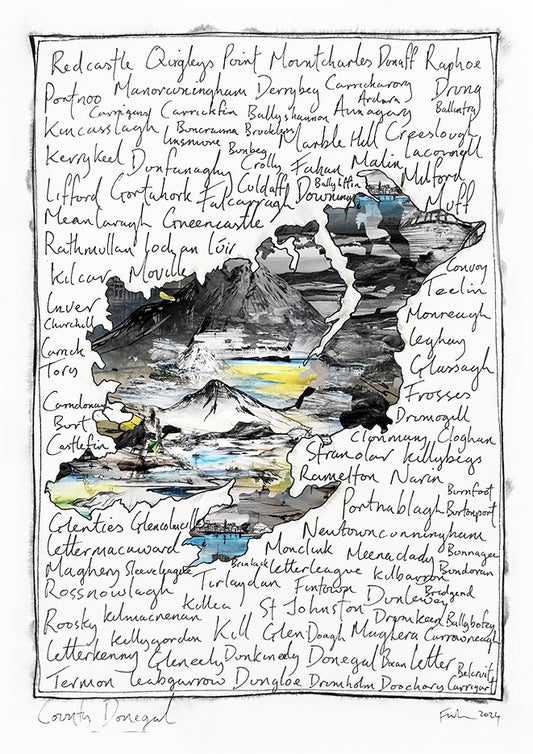 Redcastle Quigleys Point Mountcharles Donaff Raphoe
Portnoo Manorcunningham Derrybeg Carrickarory Drung
Carrigans Carrickfin Ballyshannon Annagary Ardara Ballintra
Kincasslagh Buncranna Bruckless Marble Hill Creeslough
Linsmore Bunbeg Crolly Fahan Malin
Kerrykeel Dunfanaghy Culdaff Ballyliffin Milford
Lifford Gortahork Falcarragh Downings Muff
Meanlaragh Greencastle
Rathmullan Lochan Iúir
Kilcar Moville Convoy
Inver Teelin
Churchill Monreagh
Carrick Leghay
Tory Glassagh
Frosses
Carndonagh Drumogill
Burt Clonmany Cloghan
Castlefin Stranolar Killybegs
Ramelton Narin
Portnablagh Burnfoot Burtonport
Glenties Glencolmcille Newtowncunningham
Lettermacaward Monclink Meenaclady Bunnagee
Maghery Sleeveleague Brinlack Letterleague Kilbarron Bundoran
Rossnowlagh Tirlaydan Fintown Dunlewey Bridgend
Roosky Kilmacrenan Killea St Johnston Drumkeen Ballybofey
Killygordon Kill Glen Doagh Maghera Carrowreagh
Letterkenny Gleneely Dunkineely Donegal Letter Belcruit
Termon Leabgarrow Dungloe Drumholm Doochary Carrigart
County Donegal
2024